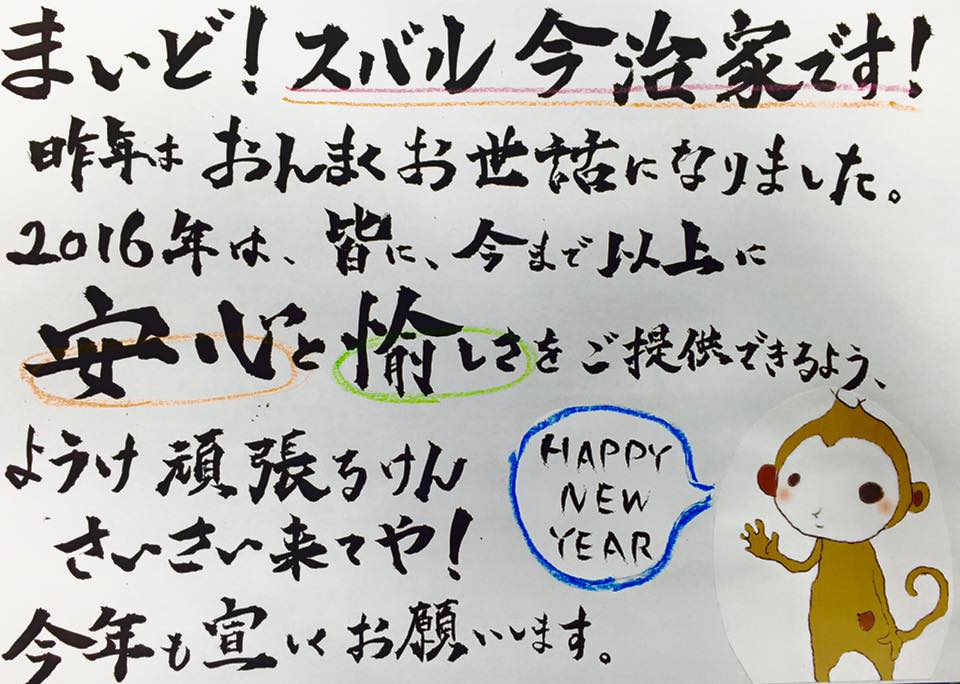 まいど!スバル今治家です!
昨年はおんまくお世話になりました。
2016年は、皆に、今まで以上に
安心と愉しさをご提供できるよう、
ようけ頑張るけん
さいさい来てや!
HAPPY
NEW
YEAR
今年も宣しくお願いします。